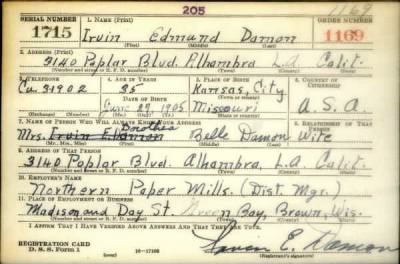 205
1169
SERIAL NUMBER 1. NAME (Print) ORDER NUMBER
1715 Irvin Edmund Damon 1169
(First) (Middle) (Last)
2. ADDRESS (Print)
3140 Poplar Blvd. Alhambra L.A. Calif.
(Number and street or R. F. D. number) (Town) (County) (State)
3. TELEPHONE 4. AGE IN YEARS 5. PLACE OF BIRTH 6. COUNTRY OF CITIZENSHIP
Cu. 31902 35 Kansas, City
DATE OF BIRTH
June 1905 Missouri U.S.A.
(Mo.) (Day) (Yr.)
7. NAME OF PERSON WHO WILL ALWAYS KNOW YOUR ADDRESS 8. RELATIONSHIP OF THAT PERSON
Dorothea
Mrs. Irvin E. Damon Belle Damon Wife
(Mr., Mrs., Miss) (First) (Middle) (Last)
9. ADDRESS OF THAT PERSON
3140 Poplar Blvd. Alhambra, L.A. Calif.
(Number and street or R. F. D. number) (Town) (County) (State)
10. EMPLOYER'S NAME
Northern Paper Mills. (Dist. Mgr.)
11. PLACE OF EMPLOYMENT OR BUSINESS
Madison and Day St. Green Bay, Brown, Wis.
(Number and street or R. F. D. number) (Town) (County) (State)
I AFFIRM THAT I HAVE VERIFIED ABOVE ANSWERS AND THAT THEY ARE TRUE.
REGISTRATION CARD
D. S. S. Form 1 16-17105 Irvin E. Damon
(Registrant's signature)